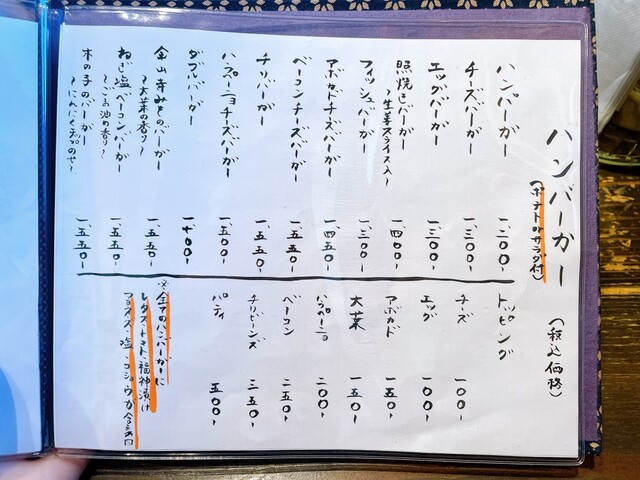 ハンバーガー
(ポテトorサラダ付)
(税込価格)
ハンバーガー 一、二〇〇-
チーズバーガー 一、三〇〇-
エッグバーガー 一、三〇〇-
照焼きバーガー 一、四〇〇-
~生姜スライス入~
フィッシュバーガー 一、三〇〇-
アボカドチーズバーガー 一、四五〇-
ベーコンチーズバーガー 一、五五〇-
チリバーガー 一、五五〇-
ハラペーニョチーズバーガー 一、五〇〇-
ダブルバーガー 一、七〇〇-
金山寺みそのバーガー 一、五五〇-
~大葉の香り~
ねぎ塩ベーコンバーガー 一、五五〇-
~ごま油の香り~
木の子のバーガー 一、五五〇-
トッピング
チーズ 一〇〇-
エッグ 一〇〇-
アボカド 一五〇-
大葉 一五〇-
ハラペーニョ 二〇〇-
ベーコン 二五〇-
チリビーンズ 三五〇-
パティ 五〇〇-
※全てのハンバーガーに
レタス・トマト・福神漬け
マヨネーズ・塩・コショウが